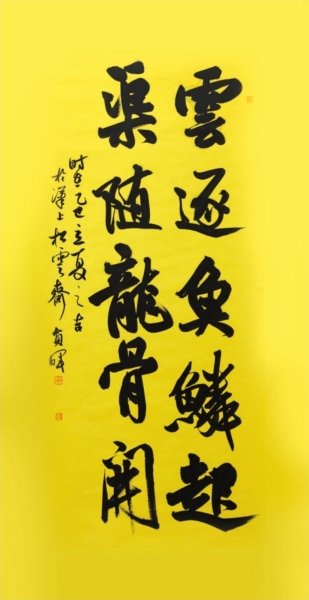 雲逐魚鱗起
渠随龍骨開
时在乙巳立夏之吉
於漢上松雲齋貞暉